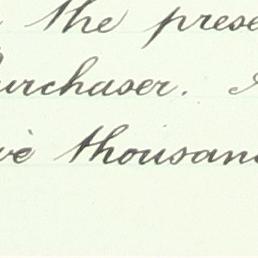 the prese
urchaser.
ve thousan